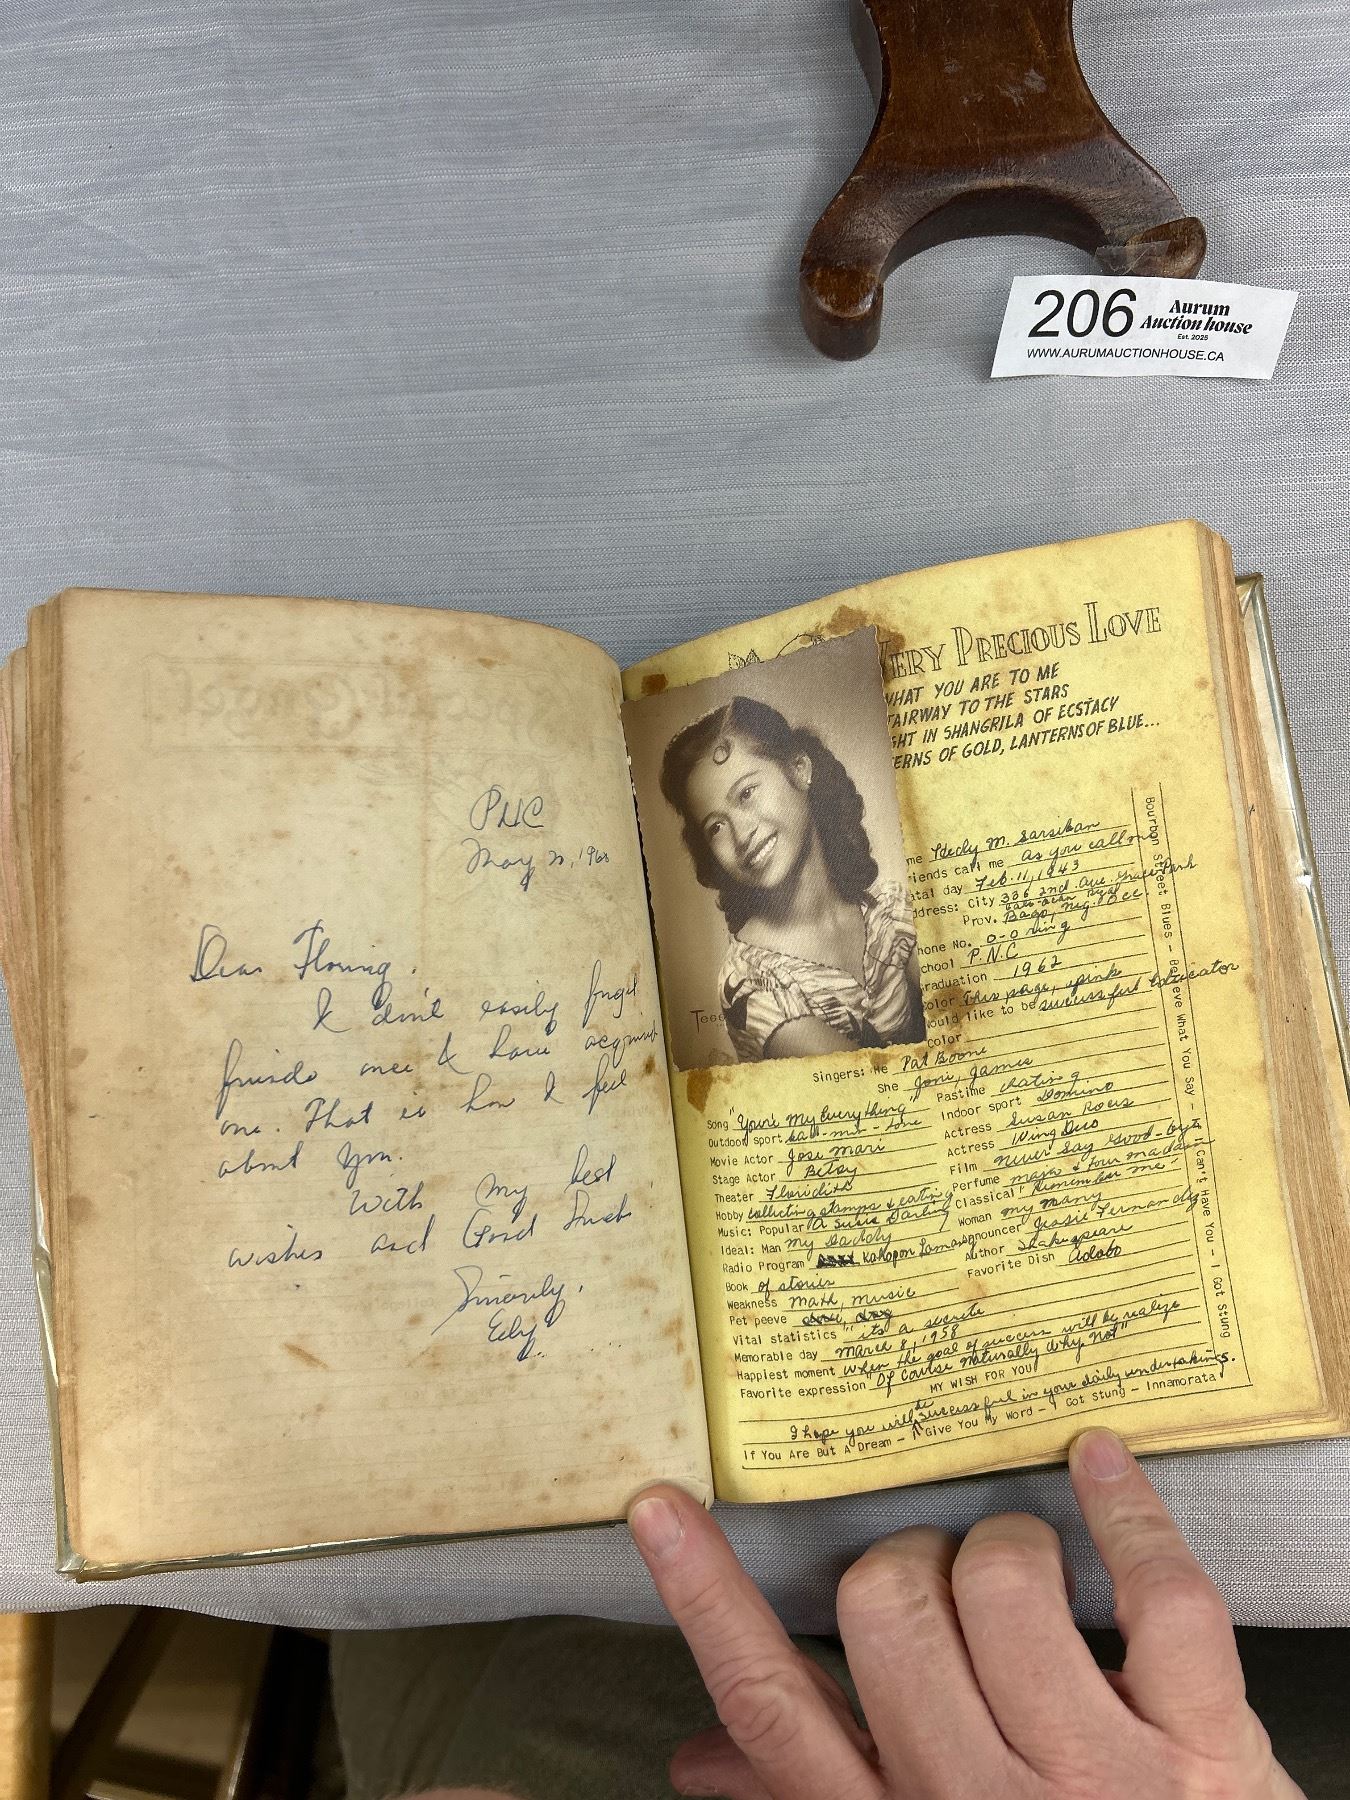 206
Aurum
Auction house
Est. 2025
WWW.AURUMAUCTIONHOUSE.CA
PNC
May
Dear
I don't easily forget
friends once I have acquired
one. That is how I feel
about you.
With my best
wishes and Good Luck
Sincerely,
Edy
VERY PRECIOUS LOVE
WHAT YOU ARE TO ME
TAIRWAY TO THE STARS
GHT IN SHANGRILA OF ECSTACY
ERNS OF GOLD, LANTERNS OF BLUE...
me Hedy M. Sarsiban
iends call me as you call me
atal day Feb. 11, 1943
ddress: City 336 2nd Ave. Grace Park
Prov. Bago, Neg. Occ.
hone No. 0-0 ring
chool P.N.C
raduation 1962
olor This page, pink
ould like to be successful educator
Color
Singers: He Pat Boone
She Joni, James
Song "You're My Everything"
Pastime eating
Outdoor sport
Indoor sport Domino
Movie Actor Jose Mari
Actress Susan Roces
Stage Actor Betsy
Actress Wing Duo
Theater Floridith
Film Never Say Good-bye
Hobby collecting stamps & eating
Perfume
Music: Popular A Susie Darling
Classical "Remember me"
Ideal: Man My Daddy
Woman my Mommy
Radio Program Kahapon Lamang
nnouncer Jessie Fernandez
Book of stories
Author Shakespeare
Weakness math, music
Favorite Dish adobo
Pet peeve
Vital statistics "its a secrete
Memorable day March 8, 1958
Happiest moment when the goal of success will be realize
Favorite expression "Of course naturally why not"
MY WISH FOR YOU
I hope you will be successful in your daily undertakings.
If You Are But A Dream - I Give You My Word - I Got Stung - Innamorata
Bourbon Street Blues - Believe What You Say - I Can't Have You - I Got Stung
Teee